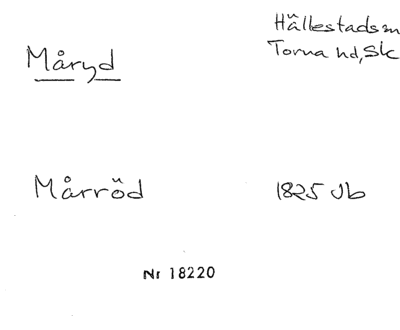 Måryd
Hällestads sn
Torna hd, Sk
Mårröd
1825 Jb
Nr 18220